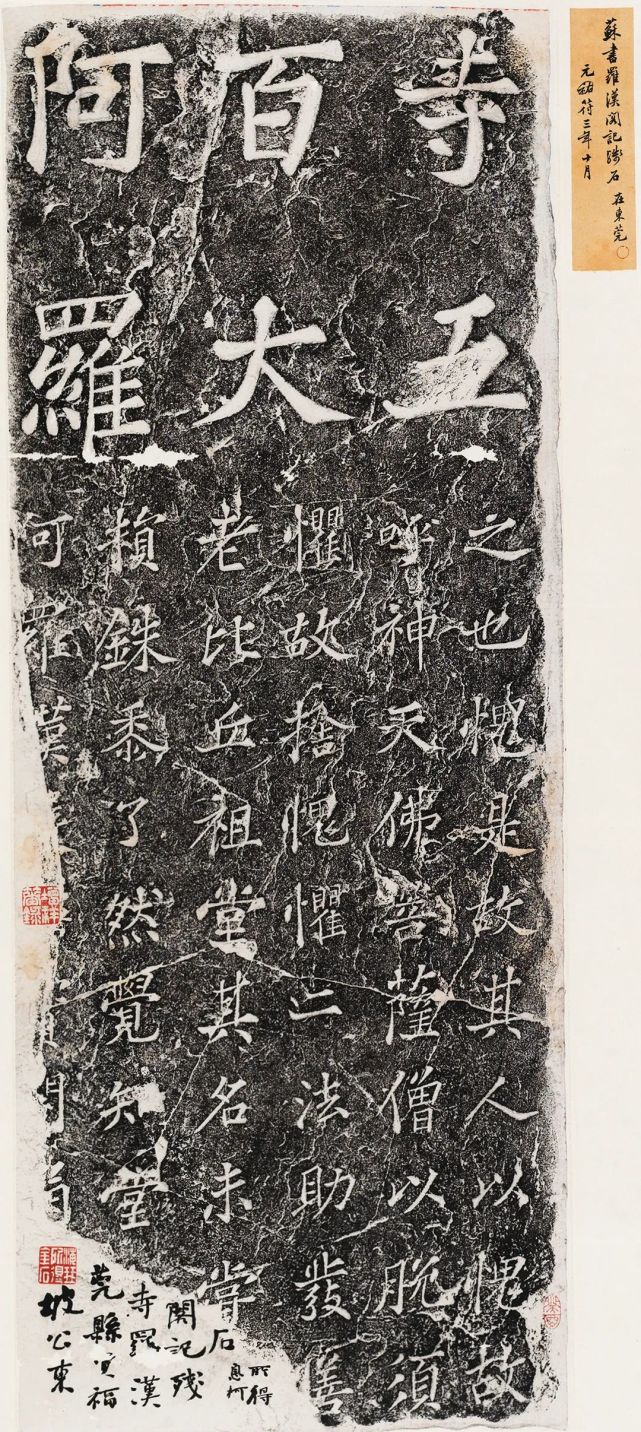 蘇書羅漢閣記殘石 在東莞
元符三年十月
寺五
百大
阿羅
之也愧是故其人以愧故
呼神天佛菩薩僧以脫須
懼故捨愧懼亡法助發善
老比丘祖堂其名未嘗
銖黍了然覺知堂
阿羅漢
坡公東
莞縣資福
寺羅漢
閣記殘
石
息柯
所得